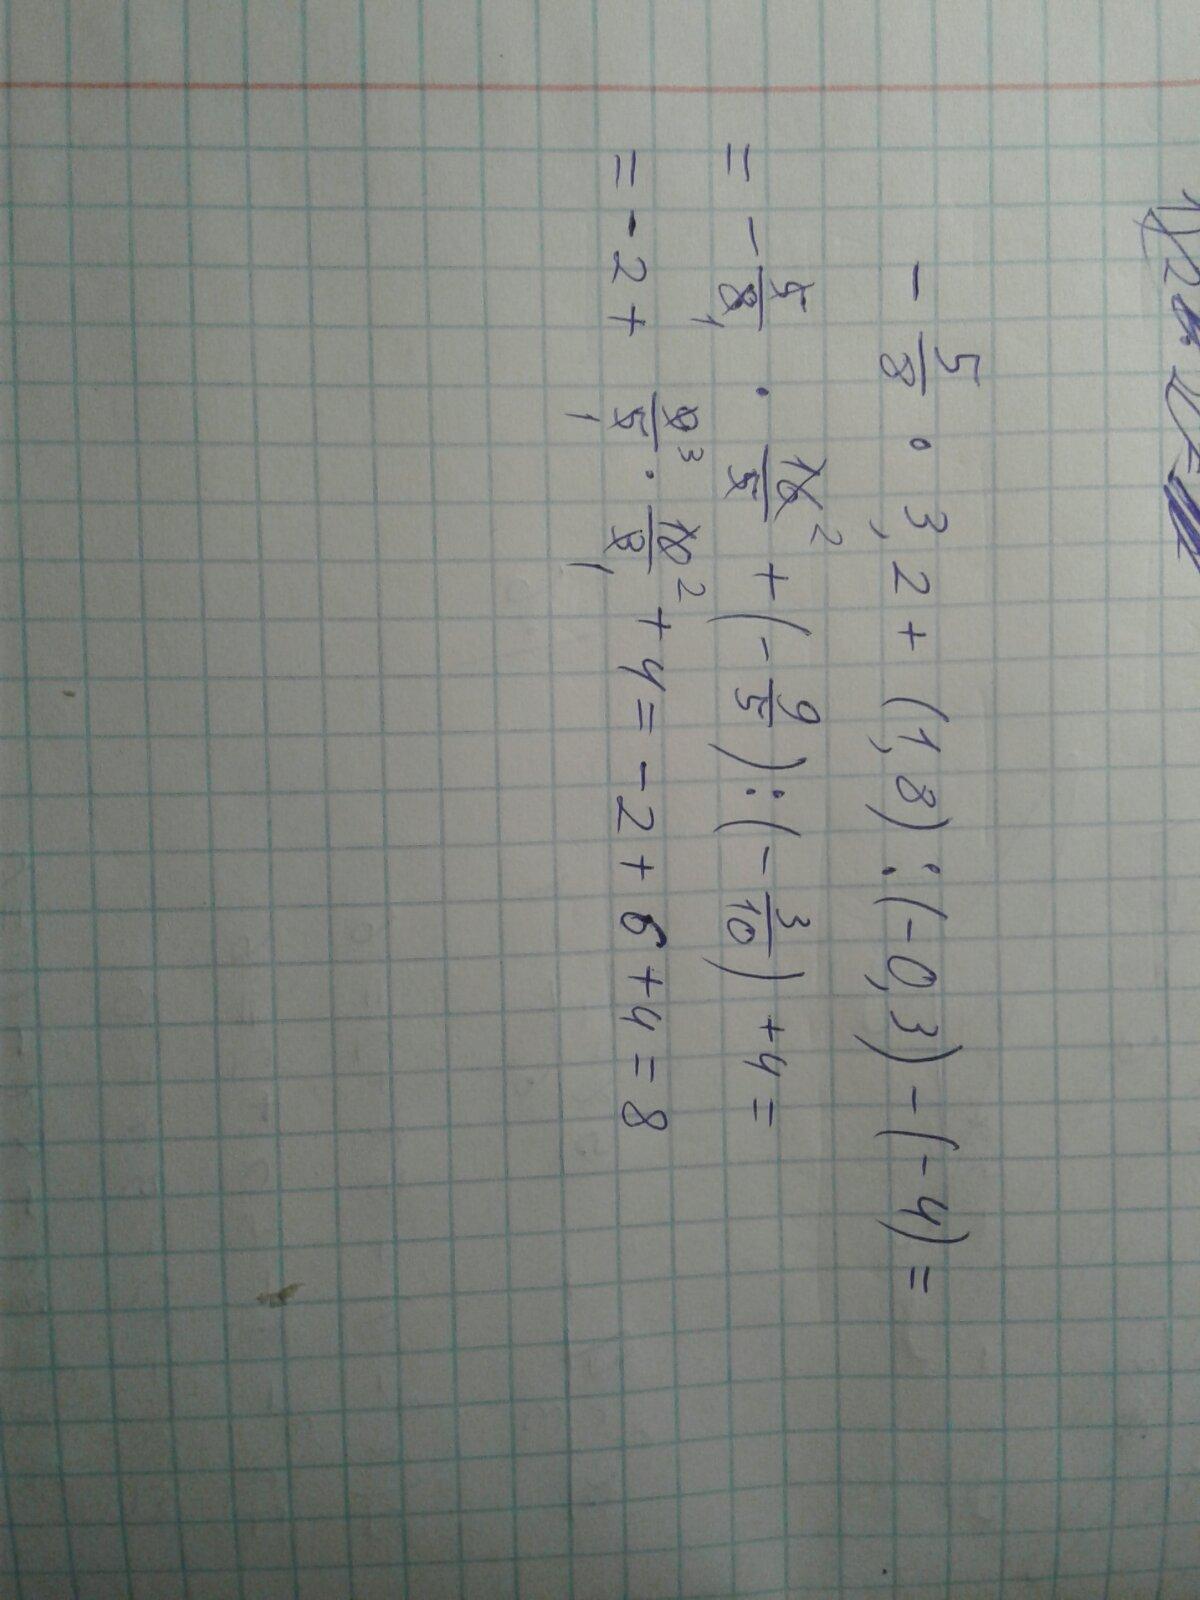 - 5/8 · 3,2 + (1,8) : (-0,3) - (-4) =
= - 5/8 1 · 16 2/5 + (- 9/5) : (- 3/10) + 4 =
= - 2 + 9 3/5 1 · 10 2/3 1 + 4 = - 2 + 6 + 4 = 8